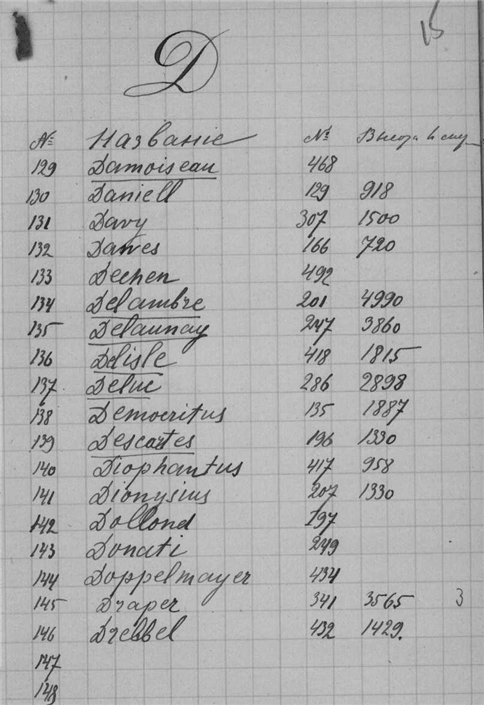 15
D
№ Названіе № Высота h
129 Damoiseau 468
130 Daniell 129 918
131 Davy 307 1500
132 Dawes 166 720
133 Dechen 492
134 Delambre 201 4990
135 Delaunay 247 3860
136 Delisle 418 1815
137 Deluc 286 2898
138 Democritus 135 1887
139 Descartes 196 1330
140 Diophantus 417 958
141 Dionysius 207 1330
142 Dollond 197
143 Donati 249
144 Doppelmayer 434
145 Draper 341 3565 3
146 Drebbel 432 1429.
147
148